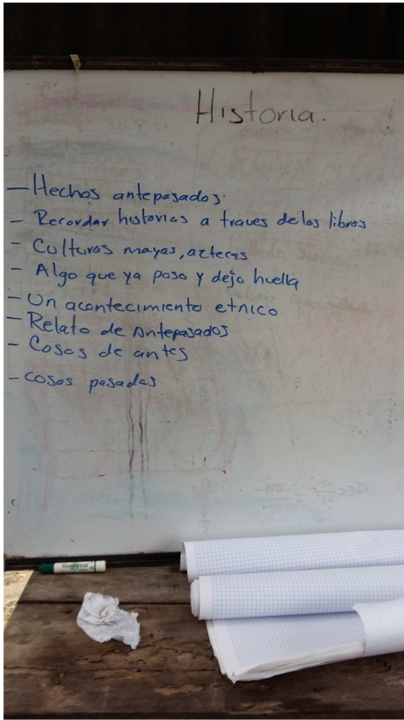 Historia.
- Hechos antepasados
- Recordar historias a traves de los libros
- Culturas mayas, aztecas
- Algo que ya paso y dejo huella
- Un acontecimiento etnico
- Relato de Antepasados
- Cosas de antes
- cosas pasadas